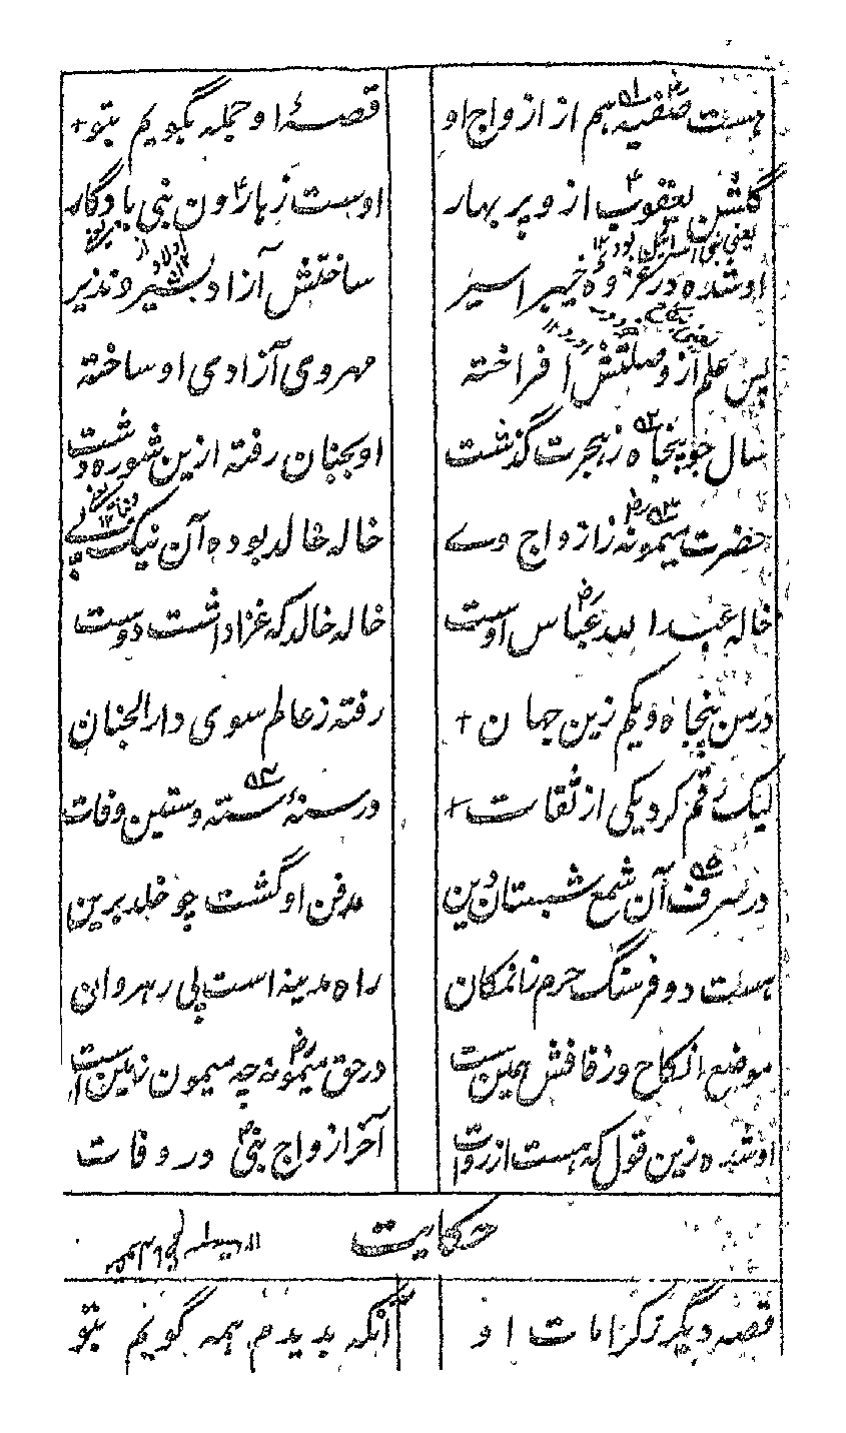 هست صفیه هم از ازواج او قصهٔ او جمله بگویم بتو
گلشن یعقوب ازو پر بهار اوست زهارون نبی یادگار
او شده در غزوهٔ خیبر اسیر ساختش آزاد بشیر و نذیر
پس علم از وصلتش افراخته مهر وی آزادی او ساخته
سال چو پنجاه ز هجرت گذشت او بجنان رفته ازین شوره دشت
حضرت میمونه ز ازواج وے خاله خالد بوده آن نیک پے
خاله عبد الله عباس اوست خاله خالد که غزا داشت دوست
در سن پنجاه و یکم زین جهان رفته ز عالم سوی دار الجنان
لیک رقم کرد یکی از ثقات در سنهٔ سته و ستین وفات
در سرف آن شمع شبستان دین مدفن او گشت چو خلد برین
هست دو فرسنگ حرم زانمکان راه مدینه است پی رهروان
موضع انکاح و زفافش همین ست در حق میمونه چه میمون زمین است
او شده زین قول که هست از روات آخر ازواج نبی در وفات
حکایت
قصه دیگر ز کرامات او آنکه بدیدم همه گویم بتو